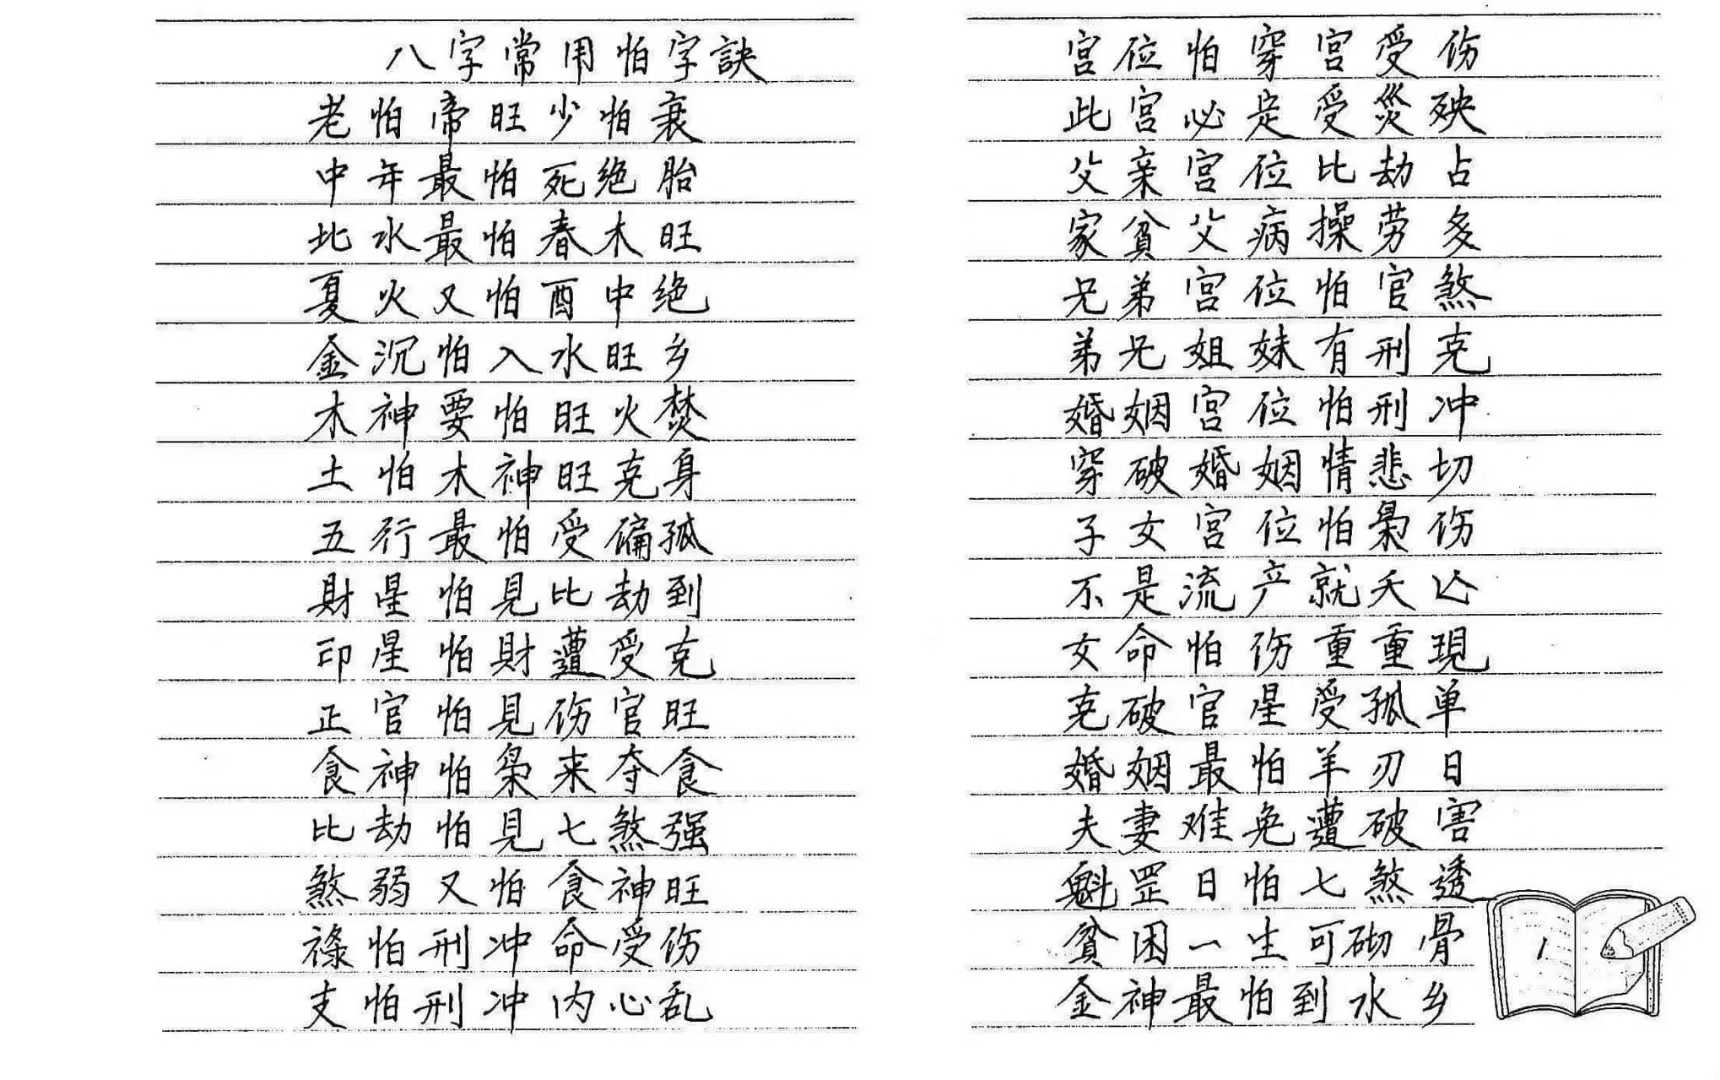 八字常用怕字訣
老怕帝旺少怕衰
中年最怕死绝胎
北水最怕春木旺
夏火又怕酉中绝
金沉怕入水旺乡
木神要怕旺火焚
土怕木神旺克身
五行最怕受偏孤
財星怕見比劫到
印星怕財遭受克
正官怕見伤官旺
食神怕枭来夺食
比劫怕見七煞强
煞弱又怕食神旺
祿怕刑冲命受伤
支怕刑冲内心乱
宫位怕穿宫受伤
此宫必定受災殃
父亲宫位比劫占
家貧父病操劳多
兄弟宫位怕官煞
弟兄姐妹有刑克
婚姻宫位怕刑冲
穿破婚姻情悲切
子女宫位怕梟伤
不是流产就夭亾
女命怕伤重重現
克破官星受孤单
婚姻最怕羊刃日
夫妻难免遭破害
魁罡日怕七煞透
貧困一生可砌骨
金神最怕到水乡
1